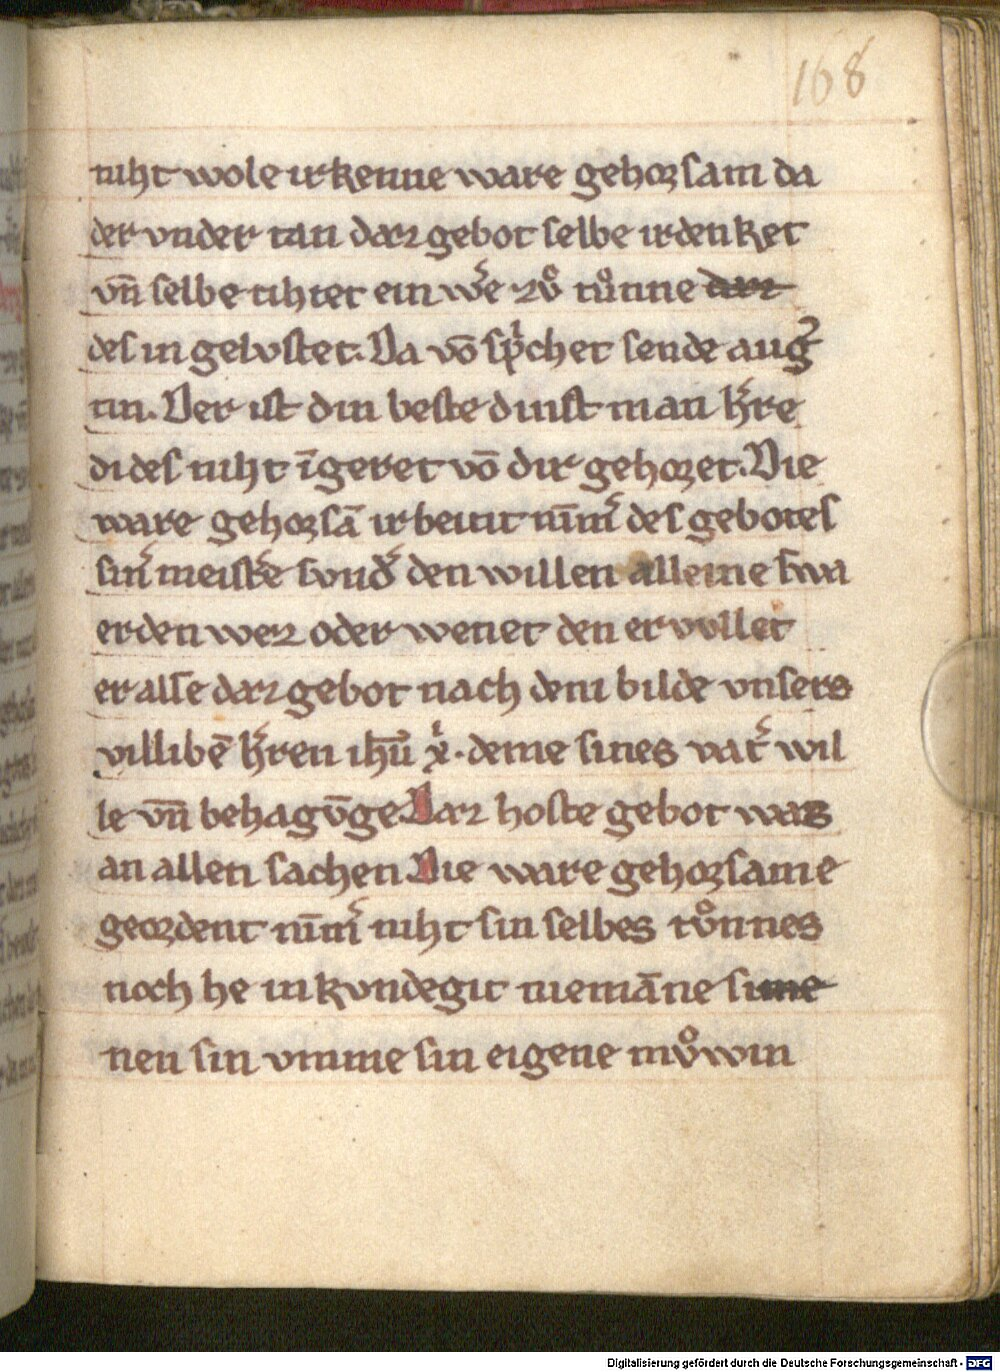 168
niht wole irkenne ware gehorsam da
der vnder tan daz gebot selbe irdenket
vn̄ selbe tihtet ein w͛e zv̊ tůnne daz
des in gelvstet. Da vō sp̍chet sende aug͛
tin. Der ist din beste dinst man h͛re
di des niht īgeret vō dir gehoret. Die
ware gehorsā irbeitit nīm͛ des gebotes
sin͛ meist͛e svnd͛ den willen alleine swa
er den weiz oder wenet den ervollet
er alse daz gebot nach dem bilde vnsers
villibē h͛ren ih̄u x̄p̍. deme sines vat͛ wil
le vn̄ behagv̄ge Daz hoste gebot was
an allen sachen Die ware gehorsame
geordent nīm͛ niht sin selbes tůnnes
noch he in kvndegit niemāne sime
nen sin vmme sin eigene mv̊win
Digitalisierung gefördert durch die Deutsche Forschungsgemeinschaft - DFG